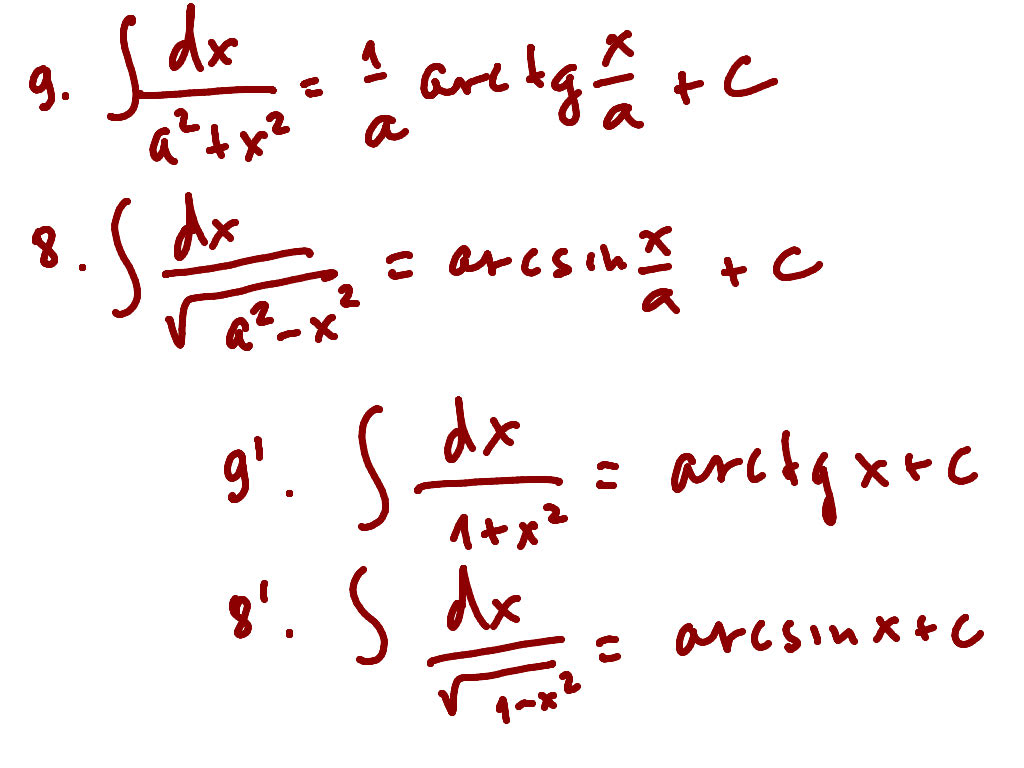 9. ∫ dx / (a² + x²) = 1/a arctg x/a + C
8. ∫ dx / √(a² - x²) = arcsin x/a + C
9'. ∫ dx / (1 + x²) = arctg x + C
8'. ∫ dx / √(1 - x²) = arcsin x + C